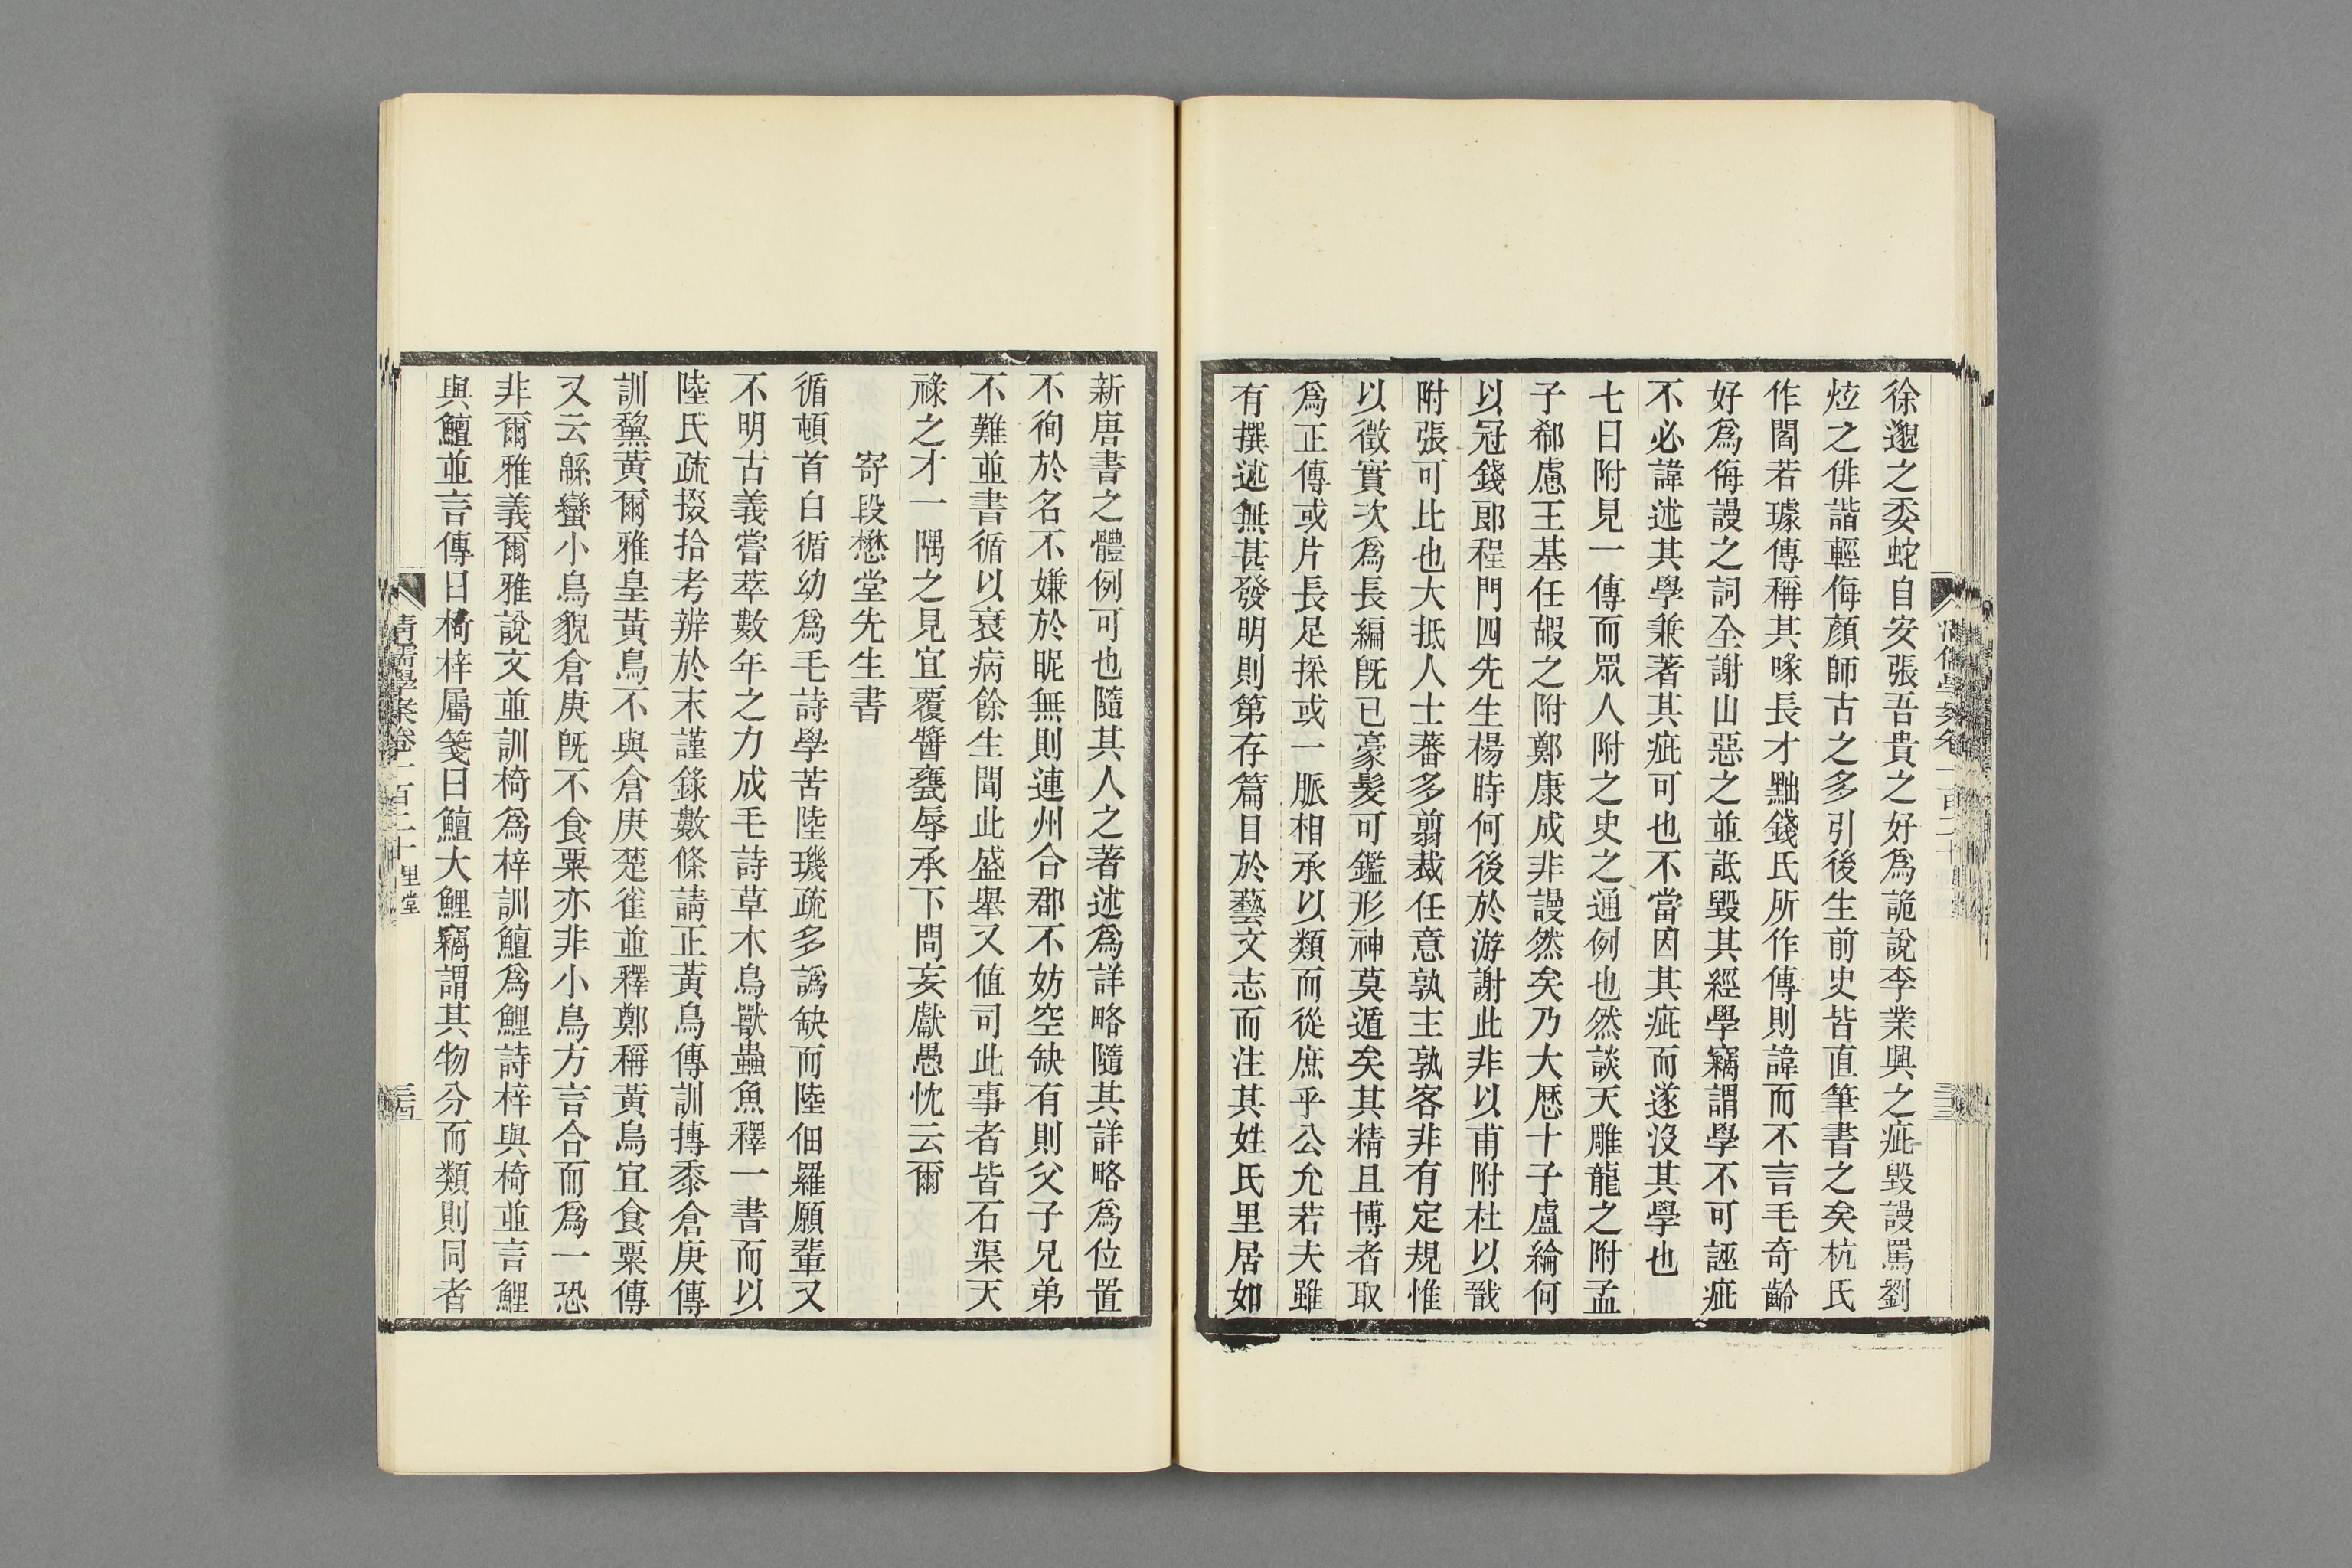 徐邈之委蛇自安張吾貴之好爲詭說李業興之疵毀謾罵劉
炫之俳諧輕侮顏師古之多引後生前史皆直筆書之矣杭氏
作閻若璩傳稱其喙長才黜錢氏所作傳則諱而不言毛奇齡
好爲侮謾之詞全謝山惡之並詆毀其經學竊謂學不可誣疵
不必諱述其學兼著其疵可也不當因其疵而遂沒其學也
七曰附見一傳而眾人附之史之通例也然談天雕龍之附孟
子郗慮王基任嘏之附鄭康成非謾然矣乃大歷十子盧綸何
以冠錢郎程門四先生楊時何後於游謝此非以甫附杜以戩
附張可比也大抵人士蕃多翦裁任意孰主孰客非有定規惟
以徵實次爲長編旣已豪髮可鑑形神莫遁矣其精且博者取
爲正傳或片長足採或一脈相承以類而從庶乎公允若夫雖
有撰述無甚發明則第存篇目於藝文志而注其姓氏里居如
新唐書之體例可也隨其人之著述爲詳略隨其詳略爲位置
不徇於名不嫌於昵無則連州合郡不妨空缺有則父子兄弟
不難並書循以衰病餘生聞此盛舉又值司此事者皆石渠天
祿之才一隅之見宜覆醬甕辱承下問妄獻愚忱云爾
寄段懋堂先生書
循頓首白循幼爲毛詩學苦陸璣疏多譌缺而陸佃羅願輩又
不明古義嘗萃數年之力成毛詩草木鳥獸蟲魚釋一書而以
陸氏疏掇拾考辨於末謹錄數條請正黃鳥傳訓摶黍倉庚傳
訓鵹黃爾雅皇黃鳥不與倉庚楚雀並釋鄭稱黃鳥宜食粟傳
又云緜蠻小鳥貌倉庚旣不食粟亦非小鳥方言合而爲一恐
非爾雅義爾雅說文並訓椅爲梓訓鱣爲鯉詩梓與椅並言鯉
與鱣並言傳曰椅梓屬箋曰鱣大鯉竊謂其物分而類則同者
清儒學案卷一百二十 里堂
三十四